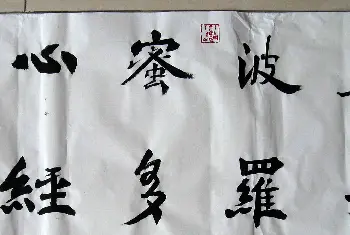 波羅
蜜多
心經